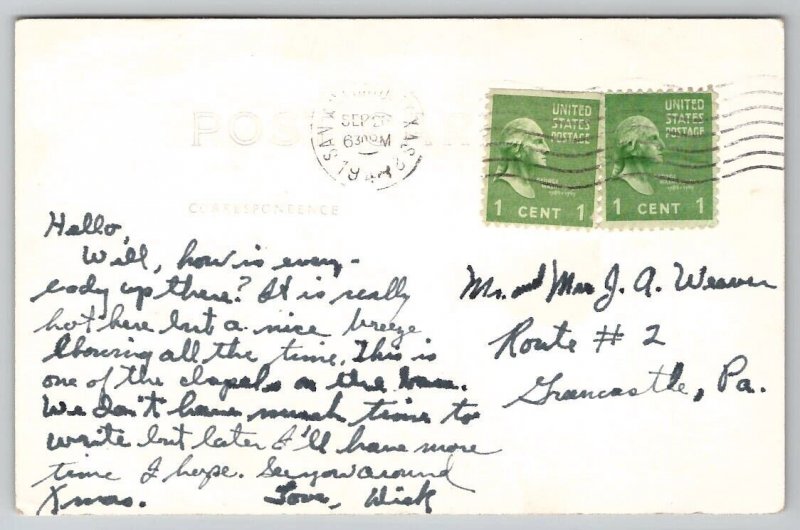 POST CARD
CORRESPONDENCE
SEP 20
630PM
TEXAS
UNITED
STATES
POSTAGE
1 CENT 1
UNITED
STATES
POSTAGE
1 CENT 1
Hello,
Well, how is every-
body up there? It is really
hot here but a nice breeze
blowing all the time. This is
one of the chapels on the base.
We don't have much time to
write but later I'll have more
time I hope. See you around
Xmas. Love, Dick
Mr. and Mrs J. A. Weaver
Route # 2
Greencastle, Pa.